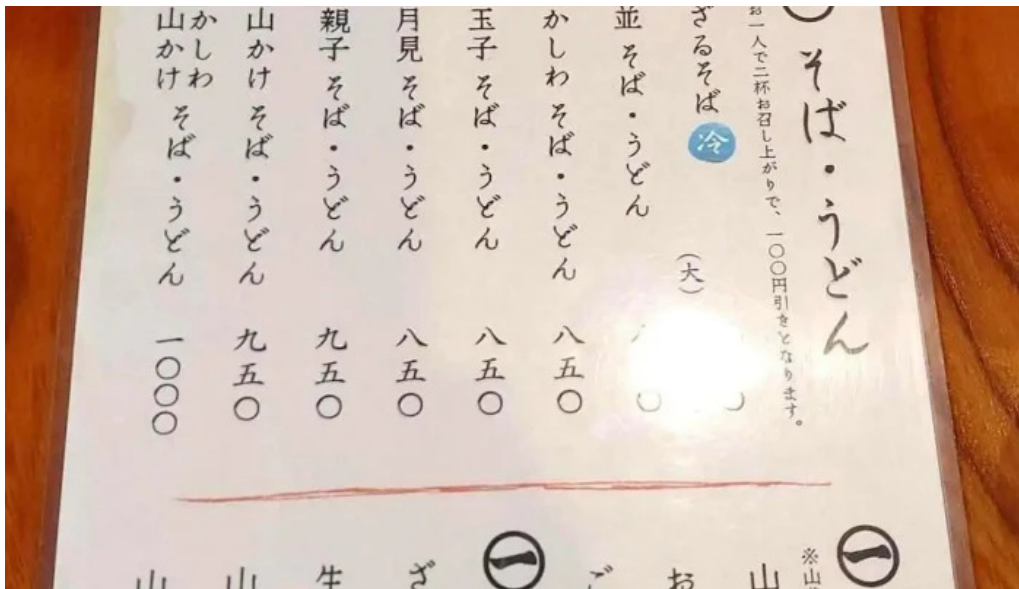 そば・うどん
お一人で二杯お召し上がりで、一〇〇円引きとなります。
ざるそば 冷
(大)
並 そば・うどん
かしわ そば・うどん 八五〇
玉子 そば・うどん 八五〇
月見 そば・うどん 八五〇
親子 そば・うどん 九五〇
山かけ そば・うどん 九五〇
かしわ
山かけ そば・うどん 一〇〇〇
一
※山
山
お
一
ざ
生
山
山